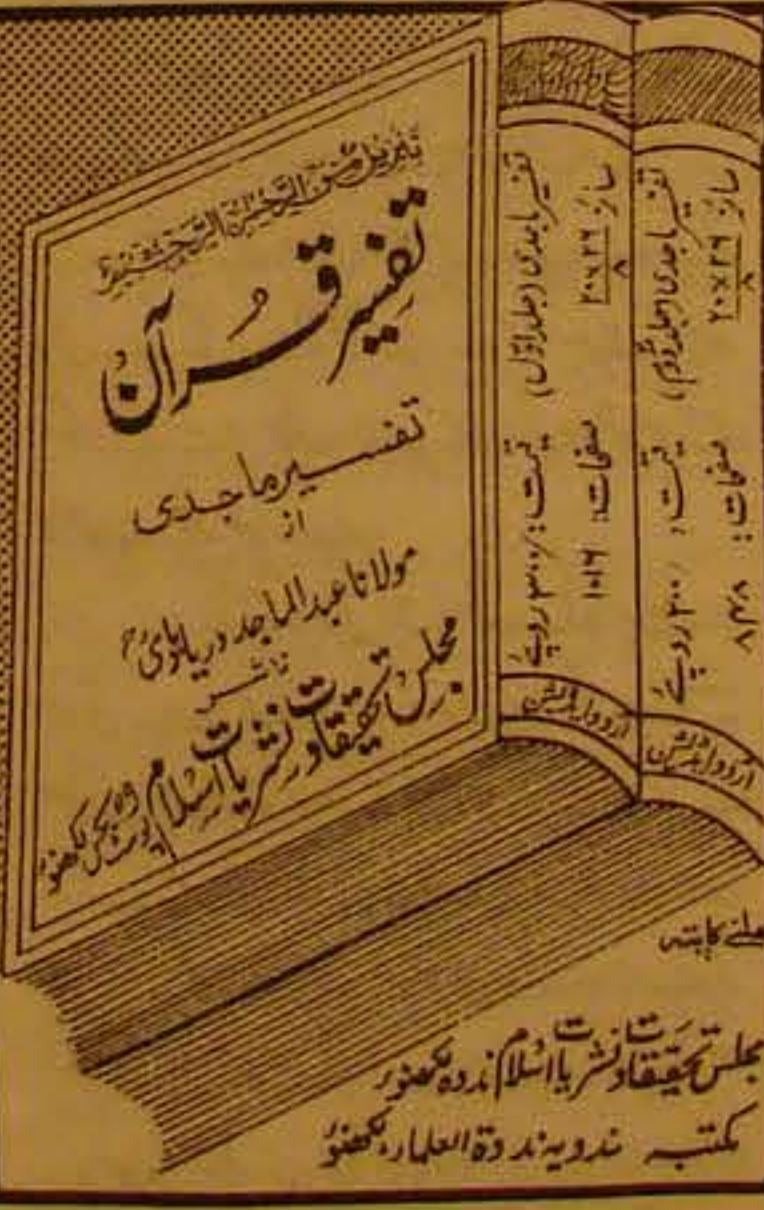 تنزيل من الرحمن الرحيم
تفسیر قرآن
تفسیر ماجدی
از
مولانا عبدالماجد دریابادیؒ
ناشر
مجلس تحقیقات و نشریات اسلام پوسٹ بکس لکھنؤ
تفسیر ماجدی (جلد اوّل)
سائز: ۲۰x۲۶/۸
قیمت: ۳۰۰/ روپیے
صفحات: ۱۰۱۶
اردو ایڈیشن
تفسیر ماجدی (جلد دوم)
سائز: ۲۰x۲۶/۸
قیمت: ۲۰۰/ روپیے
صفحات: ۸۴۸
اردو ایڈیشن
ملنے کا پتہ
مجلس تحقیقات و نشریات اسلام ندوہ لکھنؤ
مکتبہ ندویہ ندوۃ العلماء، لکھنؤ